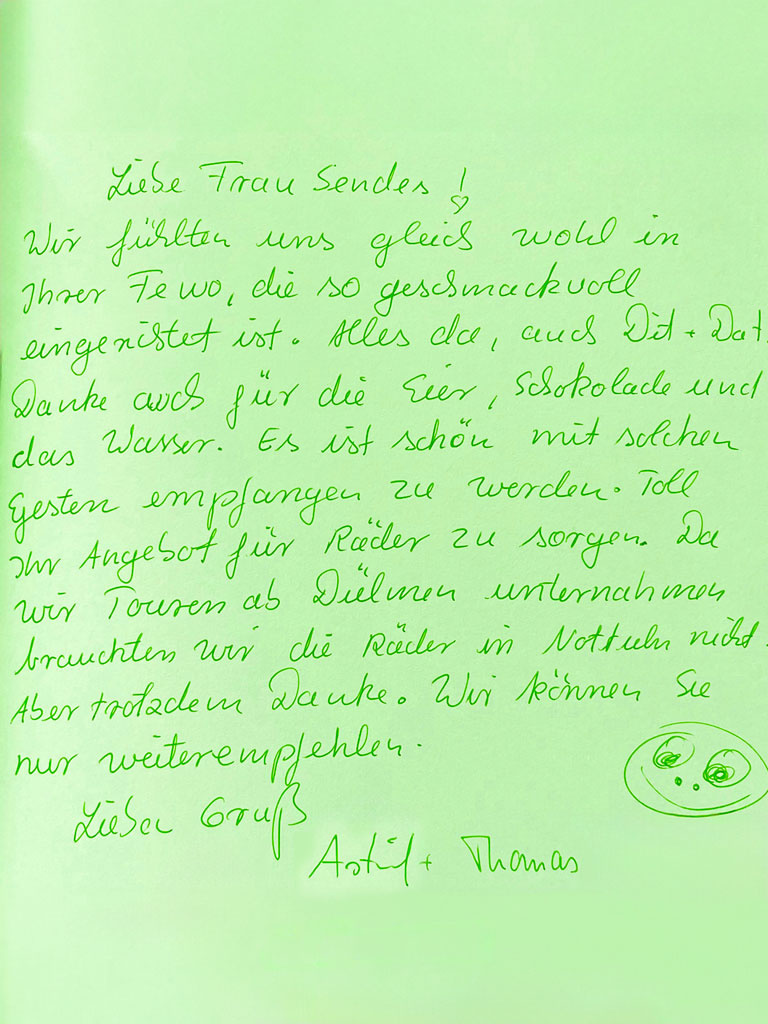 Liebe Frau Sendes!
Wir fühlten uns gleich wohl in
Ihrer Fewo, die so geschmackvoll
eingerichtet ist. Alles da, auch Dit + Dat.
Danke auch für die Eier, Schokolade und
das Wasser. Es ist schön mit solchen
Gesten empfangen zu werden. Toll
Ihr Angebot für Räder zu sorgen. Da
wir Touren ab Dülmen unternahmen
brauchten wir die Räder in Nottuln nicht.
Aber trotzdem Danke. Wir können Sie
nur weiterempfehlen.
Lieben Gruß
Astrid + Thomas